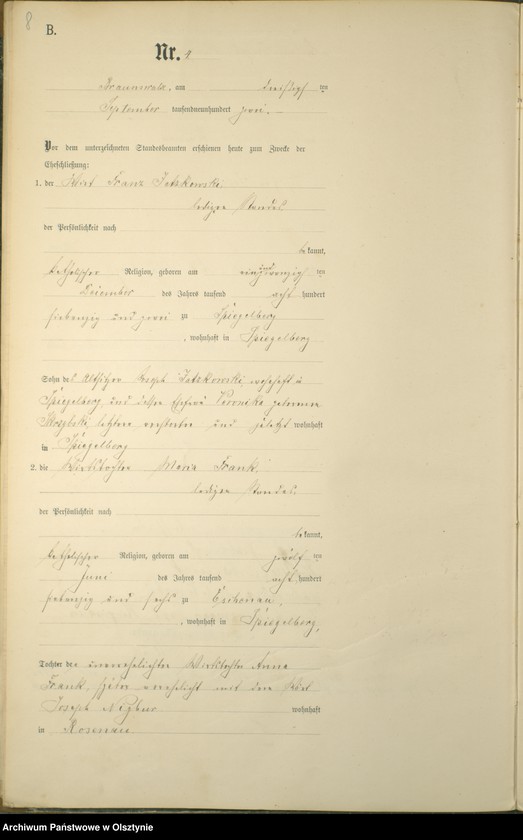 8
B.
Nr. 9
Braunswalde, am dreißigsten
September tausendneunhundert zwei.
Vor dem unterzeichneten Standesbeamten erschienen heute zum Zwecke der
Eheschließung:
1. der Wirt Franz Jatzkowski
ledigen Standes
der Persönlichkeit nach
bekannt,
katholischer Religion, geboren am einundzwanzigsten
Dezember des Jahres tausend acht hundert
siebenzig und zwei zu Spiegelberg
, wohnhaft in Spiegelberg
Sohn des Altsitzer Joseph Jatzkowski, wohnhaft in
Spiegelberg, und dessen Ehefrau Veronika geborenen
letztere verstorben und zuletzt wohnhaft
in Spiegelberg
2. die Wirtstochter Maria Frank.
ledigen Standes.
der Persönlichkeit nach
bekannt,
katholischer Religion, geboren am zwölften
Juni des Jahres tausend acht hundert
siebenzig und sechs zu
, wohnhaft in Spiegelberg,
Tochter der unverehelichten Wirtstochter Anna
Frank, verehelicht mit dem Wirt
Joseph wohnhaft
in Rosenau
Archiwum Państwowe w Olsztynie